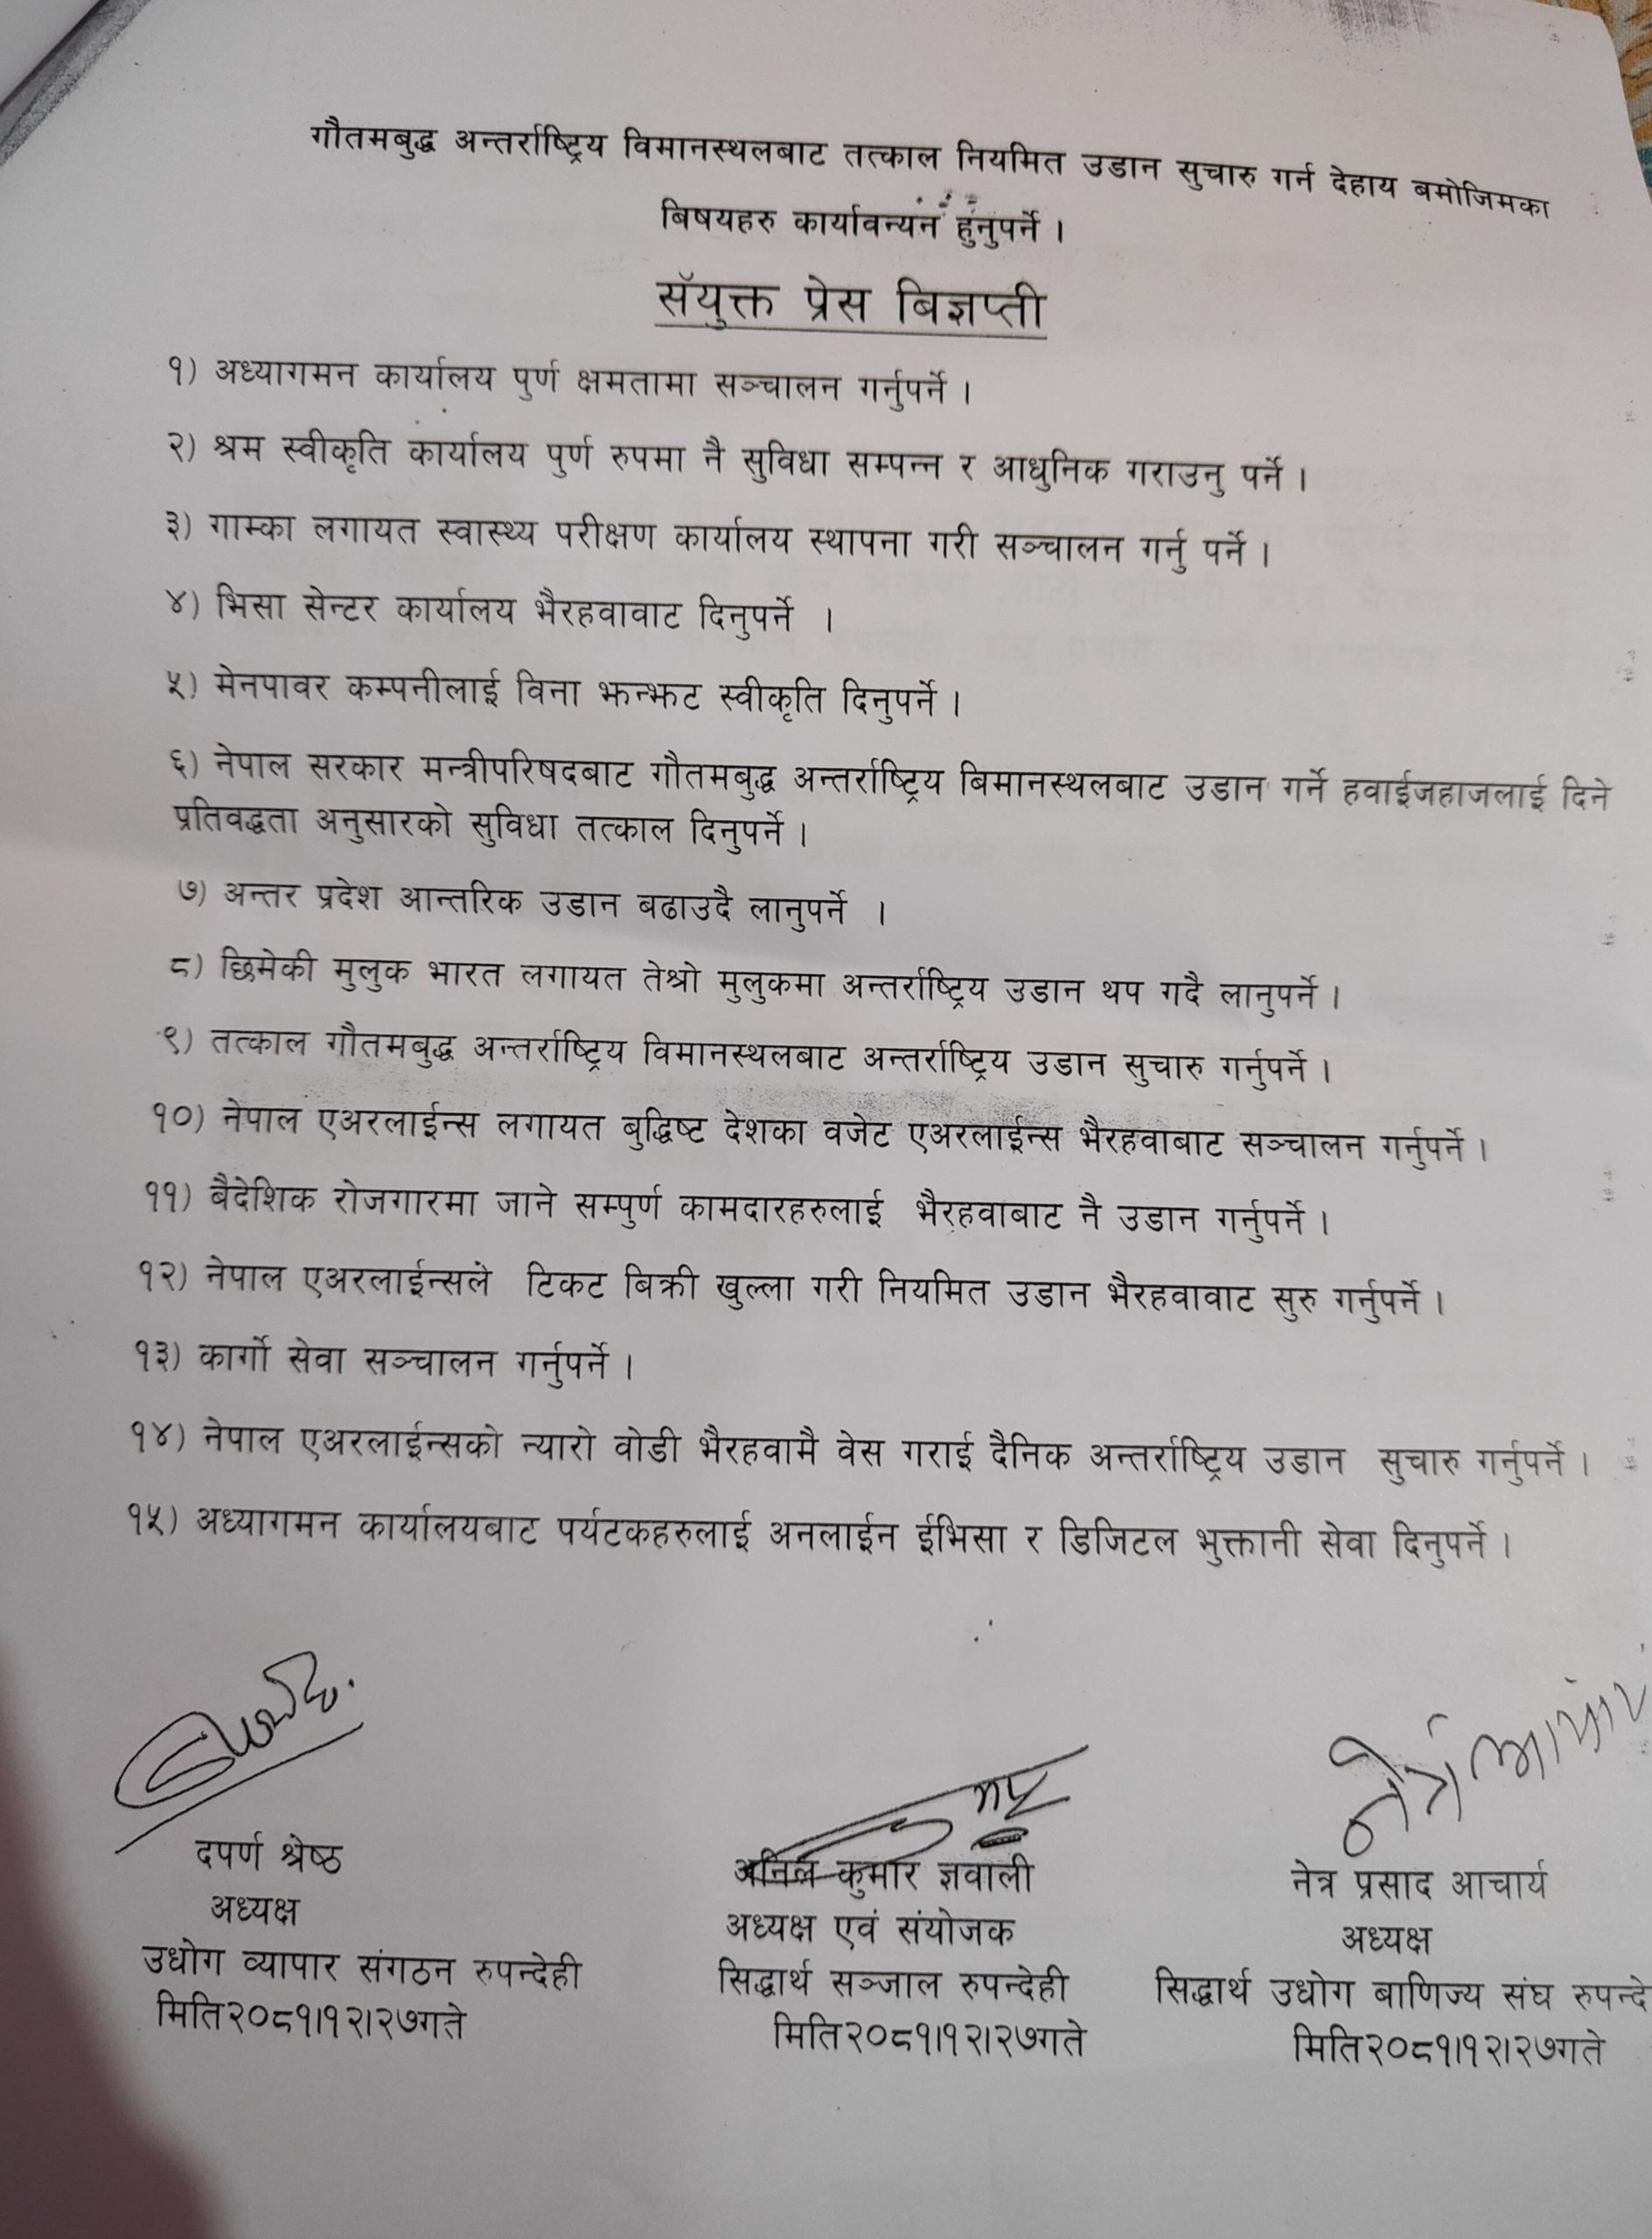 गौतमबुद्ध अन्तर्राष्ट्रिय विमानस्थलबाट तत्काल नियमित उडान सुचारु गर्न देहाय बमोजिमका
बिषयहरु कार्यावन्यन हुनुपर्ने ।
सॅयुक्त प्रेस बिज्ञप्ती
१) अध्यागमन कार्यालय पुर्ण क्षमतामा सञ्चालन गर्नुपर्ने ।
२) श्रम स्वीकृति कार्यालय पुर्ण रुपमा नै सुविधा सम्पन्न र आधुनिक गराउनु पर्ने ।
३) गाम्का लगायत स्वास्थ्य परीक्षण कार्यालय स्थापना गरी सञ्चालन गर्नु पर्ने ।
४) भिसा सेन्टर कार्यालय भैरहवावाट दिनुपर्ने ।
५) मेनपावर कम्पनीलाई विना झन्झट स्वीकृति दिनुपर्ने ।
६) नेपाल सरकार मन्त्रीपरिषदबाट गौतमबुद्ध अन्तर्राष्ट्रिय बिमानस्थलबाट उडान गर्ने हवाईजहाजलाई दिने
प्रतिवद्धता अनुसारको सुविधा तत्काल दिनुपर्ने ।
७) अन्तर प्रदेश आन्तरिक उडान बढाउदै लानुपर्ने ।
८) छिमेकी मुलुक भारत लगायत तेश्रो मुलुकमा अन्तर्राष्ट्रिय उडान थप गदै लानुपर्ने ।
९) तत्काल गौतमबुद्ध अन्तर्राष्ट्रिय विमानस्थलबाट अन्तर्राष्ट्रिय उडान सुचारु गर्नुपर्ने ।
१०) नेपाल एअरलाईन्स लगायत बुद्धिष्ट देशका वजेट एअरलाईन्स भैरहवाबाट सञ्चालन गर्नुपर्ने ।
११) बैदेशिक रोजगारमा जाने सम्पुर्ण कामदारहरुलाई भैरहवाबाट नै उडान गर्नुपर्ने ।
१२) नेपाल एअरलाईन्सले टिकट बिक्री खुल्ला गरी नियमित उडान भैरहवावाट सुरु गर्नुपर्ने ।
१३) कार्गो सेवा सञ्चालन गर्नुपर्ने ।
१४) नेपाल एअरलाईन्सको न्यारो वोडी भैरहवामै वेस गराई दैनिक अन्तर्राष्ट्रिय उडान सुचारु गर्नुपर्ने ।
१५) अध्यागमन कार्यालयबाट पर्यटकहरुलाई अनलाईन ईभिसा र डिजिटल भुक्तानी सेवा दिनुपर्ने ।
दपर्ण श्रेष्ठ
अध्यक्ष
उधोग व्यापार संगठन रुपन्देही
मिति२०८१।१२।२७गते
अनिल कुमार ज्ञवाली
अध्यक्ष एवं संयोजक
सिद्धार्थ सञ्जाल रुपन्देही
मिति२०८१।१२।२७गते
नेत्र प्रसाद आचार्य
अध्यक्ष
सिद्धार्थ उधोग बाणिज्य संघ रुपन्दे
मिति२०८१।१२।२७गते